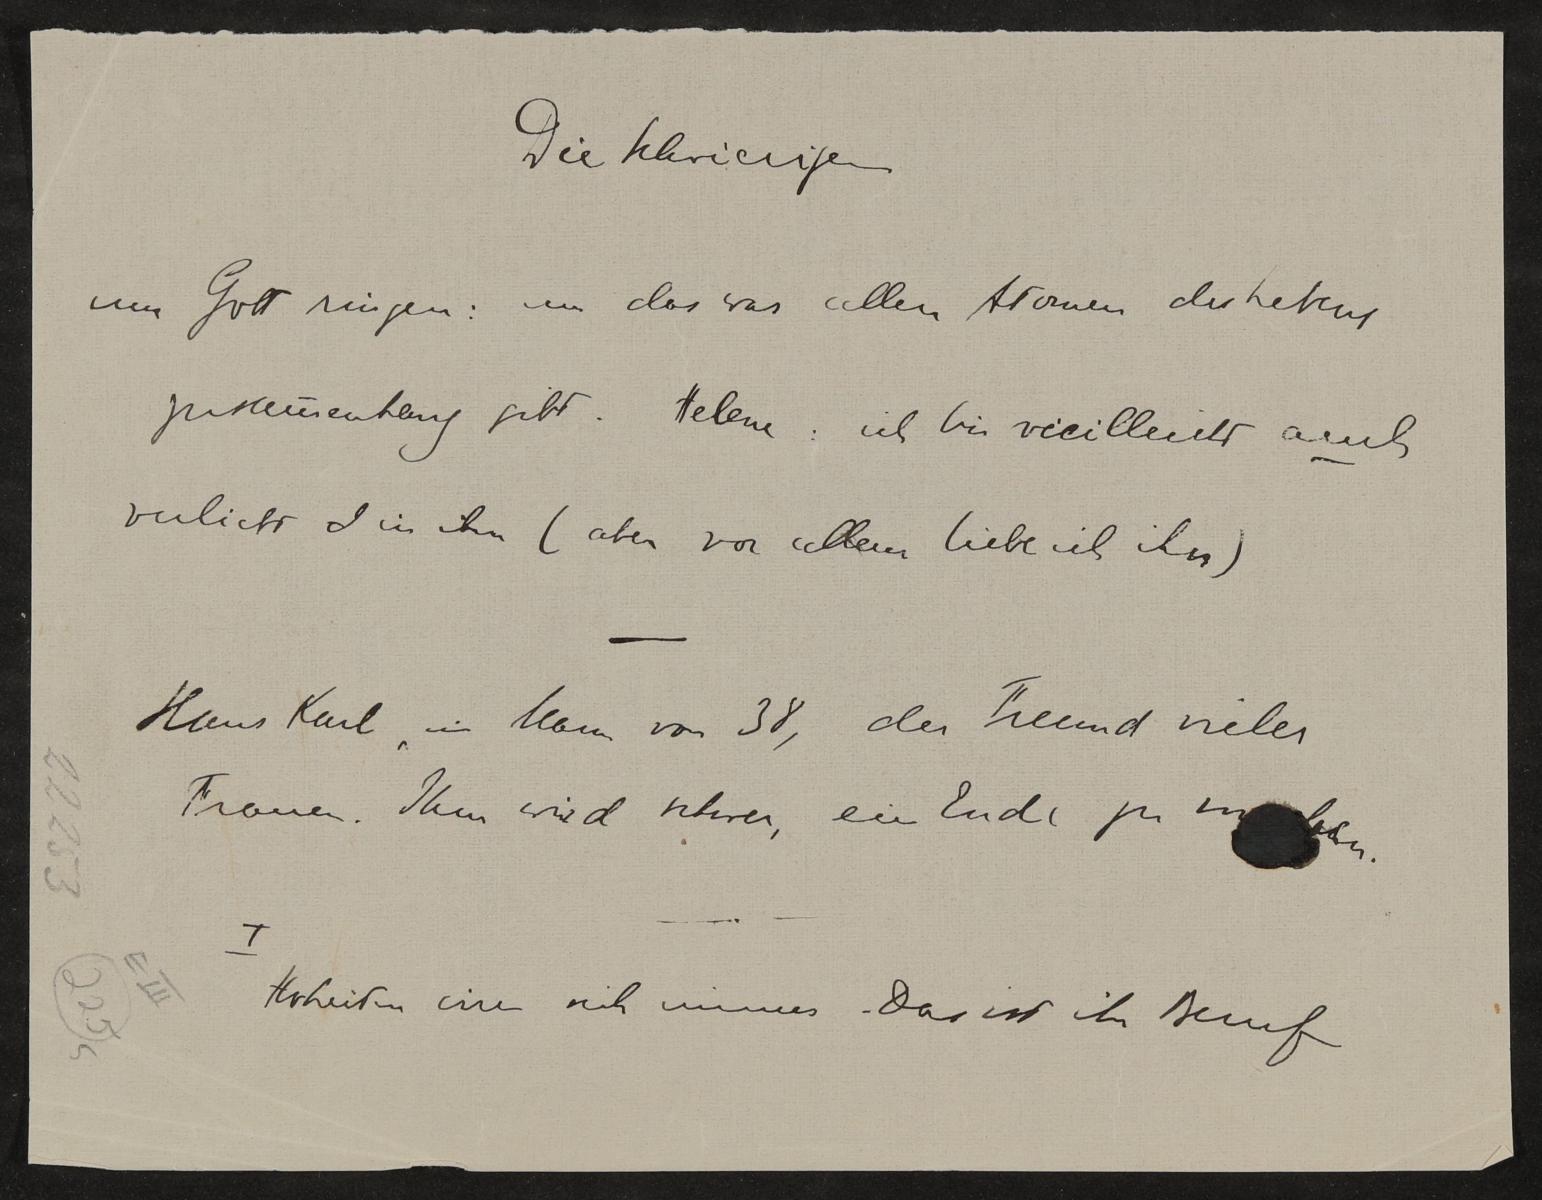 Die Schwierigen
um Gott ringen: um das was allen Atomen des Lebens
zusam̅enhang gibt. Helene: ich bin vieilleicht auch
verliebt in ihn (aber vor allem liebe ich ihn)
Hans Karl, ein Mann von 38, der Freund vieler
Frauen. Ihm wird schwer, ein Ende zu machen.
I
Hoheiten irren sich immer. Das ist ihr Beruf
22 253
III
205